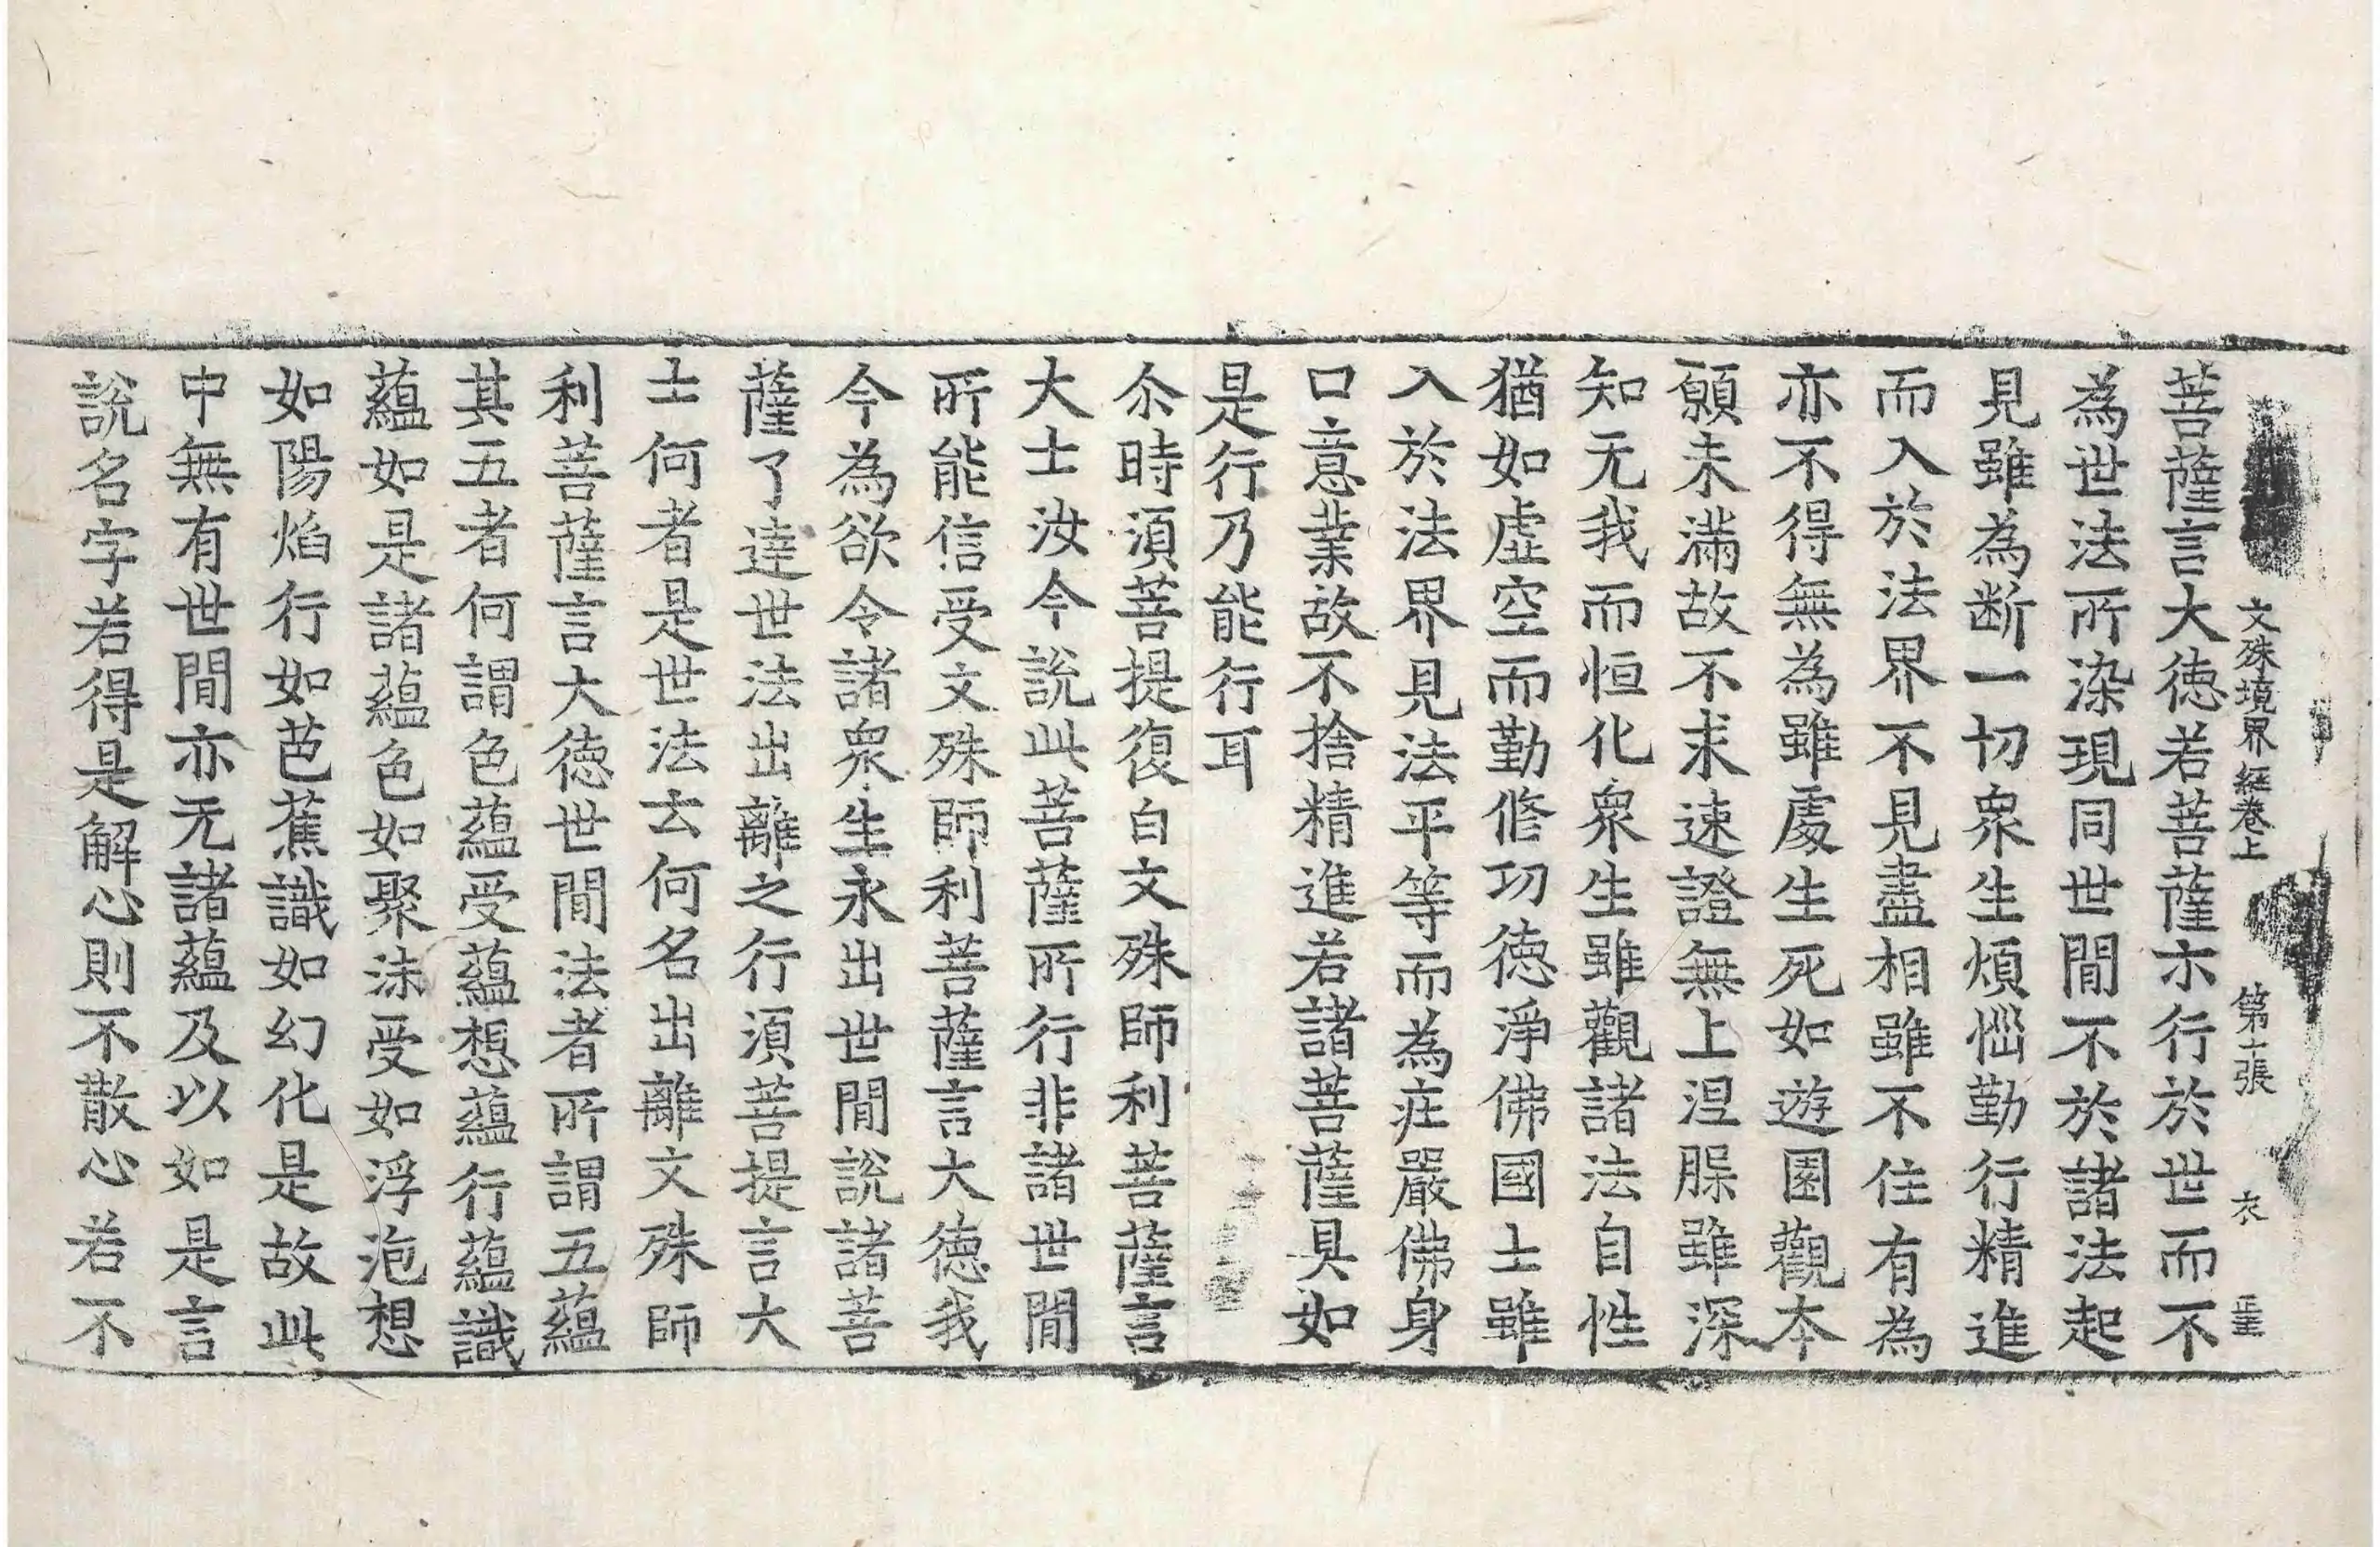 文殊境界經卷上 第二張 衣
菩薩言大德若菩薩亦行於世而不
為世法所染現同世間不於諸法起
見雖為断一切衆生煩惱勤行精進
而入於法界不見盡相雖不住有為
亦不得無為雖處生死如遊園觀本
願未滿故不求速證無上涅槃雖深
知无我而恒化衆生雖觀諸法自性
猶如虛空而勤修功德淨佛國土雖
入於法界見法平等而為莊嚴佛身
口意業故不捨精進若諸菩薩具如
是行乃能行耳
尒時須菩提復白文殊師利菩薩言
大士汝今說此菩薩所行非諸世間
所能信受文殊師利菩薩言大德我
今為欲令諸衆生永出世間說諸菩
薩了達世法出離之行須菩提言大
士何者是世法云何名出離文殊師
利菩薩言大德世間法者所謂五蘊
其五者何謂色蘊受蘊想蘊行蘊識
蘊如是諸蘊色如聚沫受如浮泡想
如陽焰行如芭蕉識如幻化是故此
中無有世間亦无諸蘊及以如是言
說名字若得是解心則不散心若不